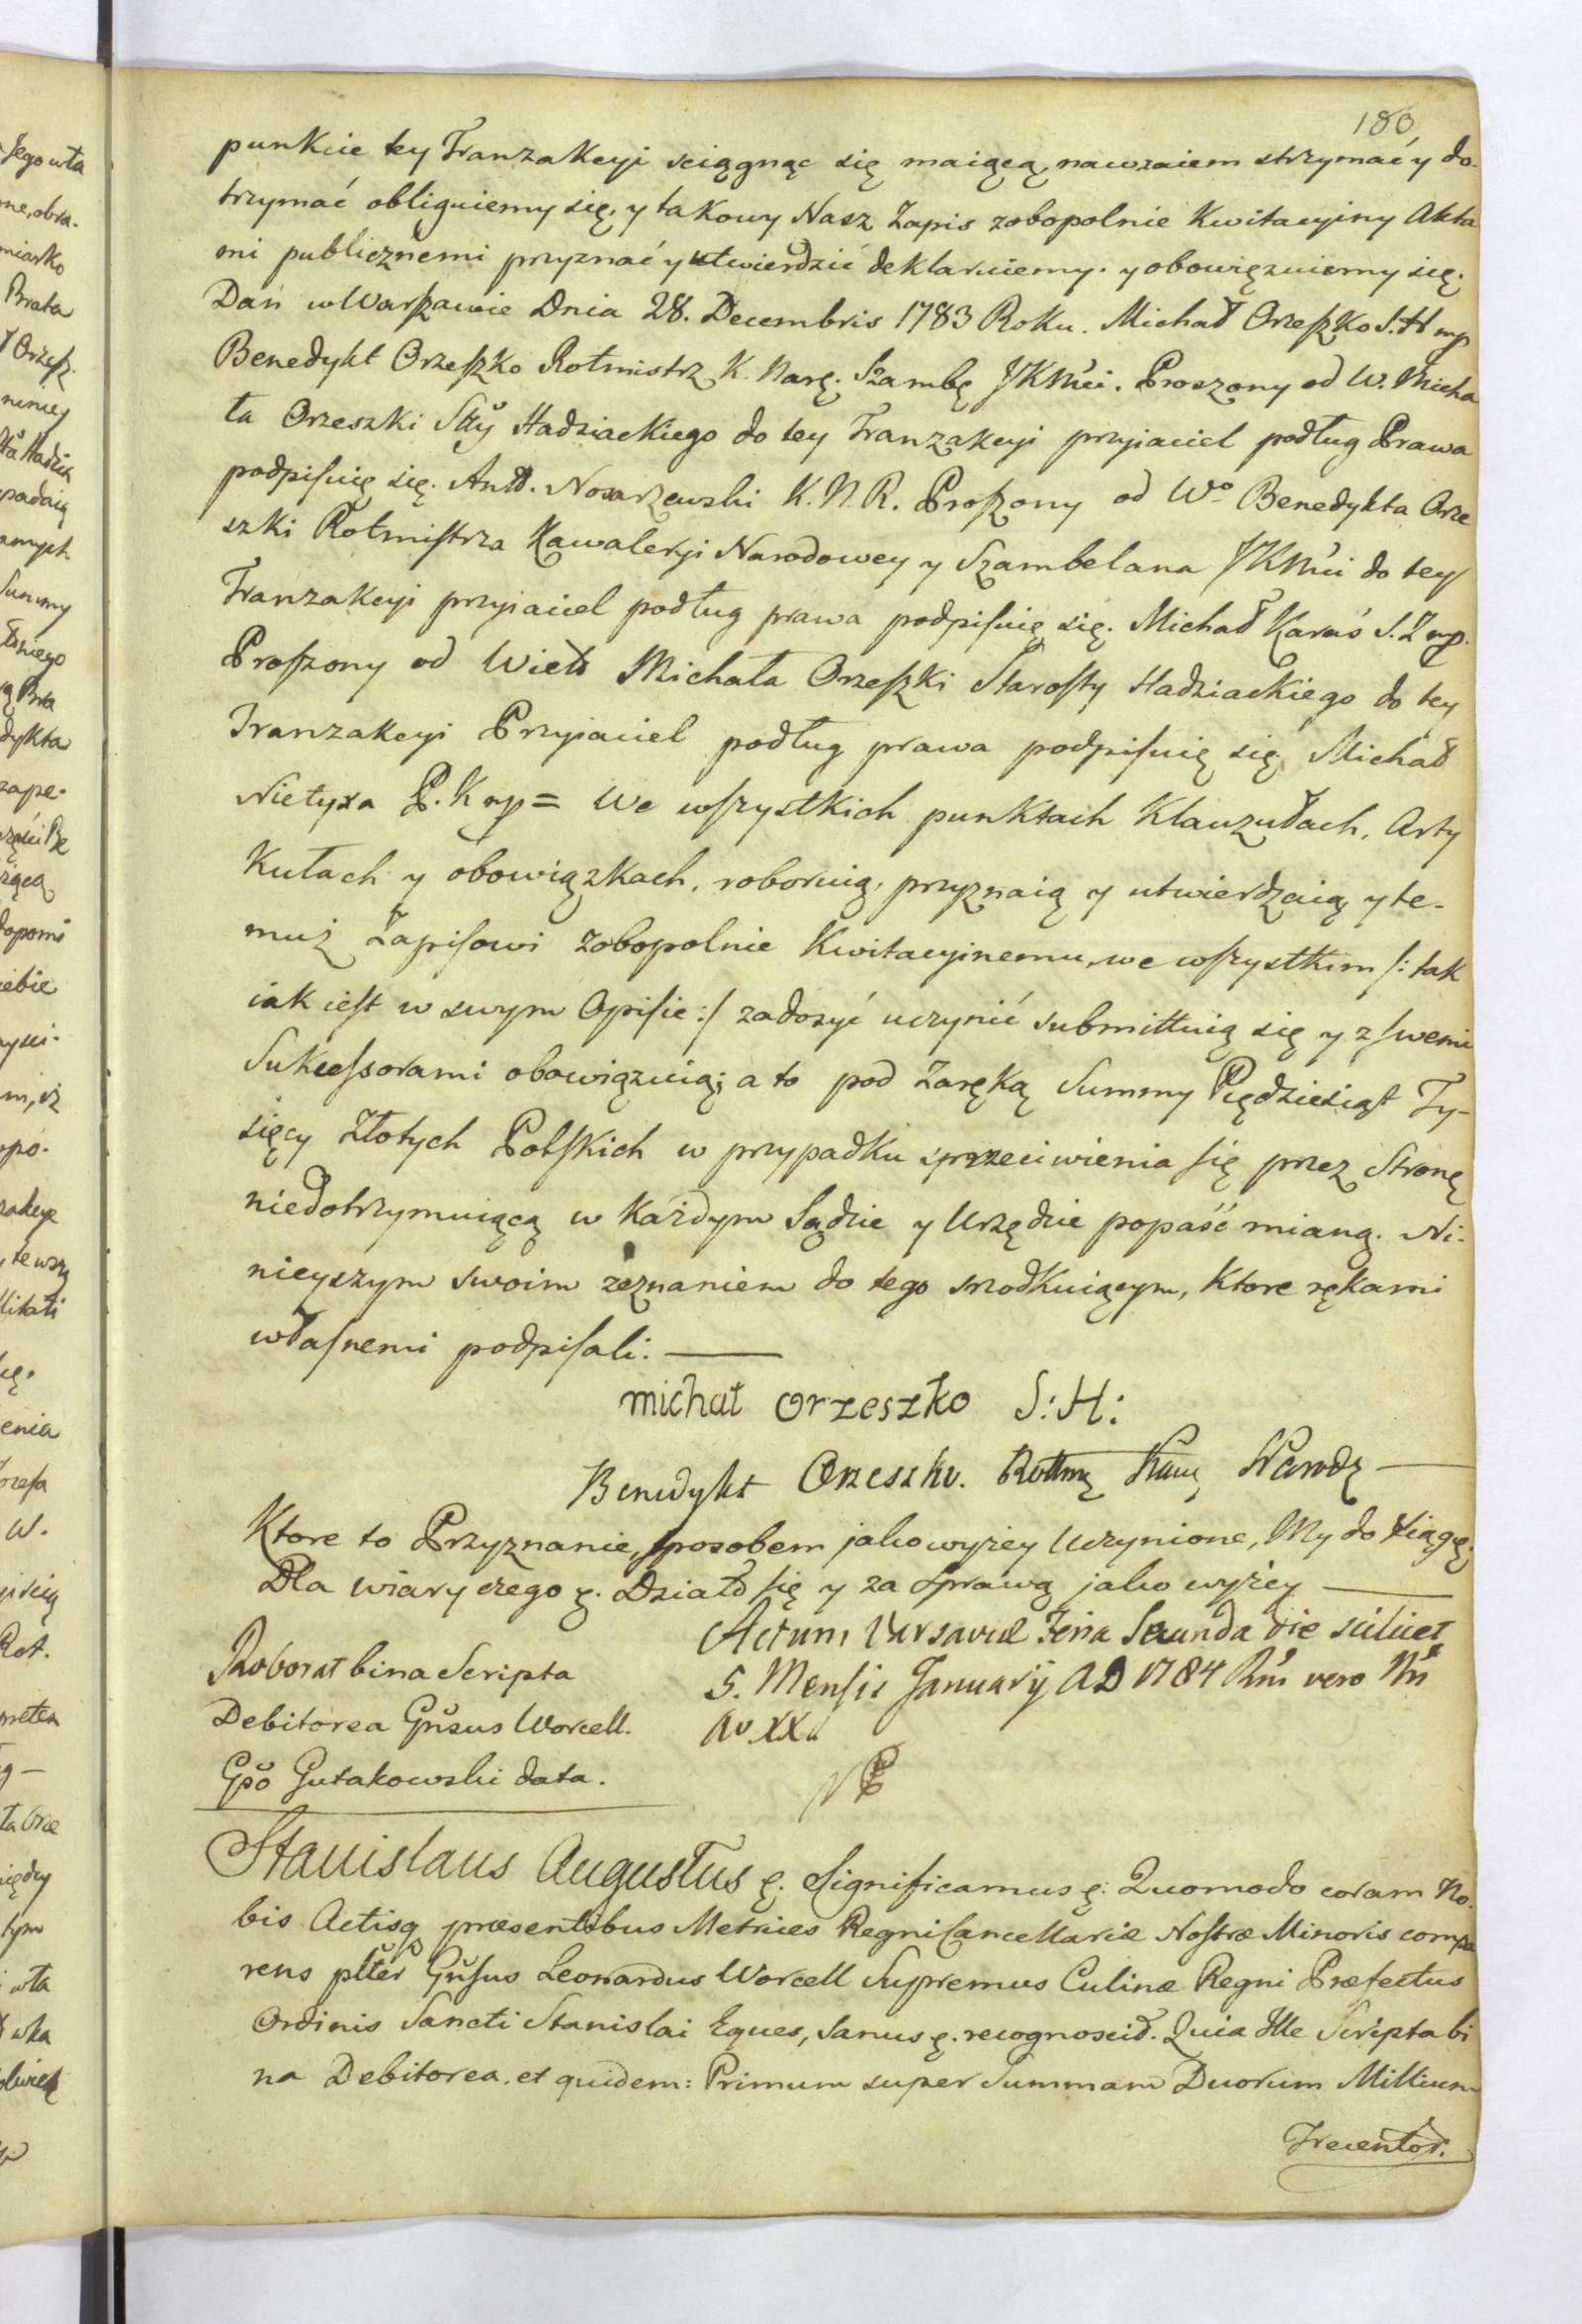 180
punkcie tey Tranzakcyi sciągnąc się maiącą, nawzaiem strzymać y do-
trzymać obliguiemy się, y takowy Nasz Zapis zobopolnie Kwitacyiny Akta
mi publicznemi przyznać y utwierdzić deklaruiemy. y obowięzuiemy się.
Dań w Warszawie Dnia 28. Decembris 1783 Roku. Michał Orzeszko S. H mp
Benedykt Orzeszko Rotmistrz K. Narę. Szambę JKMci. Proszony od W. Micha
ła Orzeszki Stty Hadziackiego do tey Tranzakcyi przyiaciel podług Prawa
podpisuię się. Antt. Nosarzewski K. N. R. Proszony od Wo Benedykta Orze
szki Rotmistrza Kawaleryi Narodowey y Szambelana JKMci do tey
Tranzakcyi przyiaciel podług prawa podpisuię się. Michał Karaś S. Z mp.
Proszony od Wielo Michała Orzeszki Starosty Hadziackiego do tey
Tranzakcyi Przyiaciel podług prawa podpisuię się, Michał
Nietyxa P. K mp = We wszystkich punktach Klauzułach, Arty
kułach y obowiązkach, roboruią, przyznaią y utwierdzaią y te-
muż Zapisowi zobopolnie Kwitacyinemu, we wszystkim /: tak
iak iest w swym Opisie :/ zadosyć uczynić submittuią się y z swemi
Sukcessorami obowiązuią; a to pod Zaręką Summy Pięćdziesiąt Ty-
sięcy Złotych Polskich w przypadku sprzeciwienia się przez Stronę
niedotrzymuiącą w każdym Sądzie y Urzędzie popaść mianą. Ni-
nieyszym swoim zeznaniem do tego srzodkuiącym, Ktore rękami
własnemi podpisali. —
michał orzeszko S: H:
Benedykt Orzeszko. Rottmę Kawę Narodę —
Ktore to Przyznanie, sposobem jako wyżey Uczynione, My do Xiągę.
Dla wiary czego ę. Działo się y za sprawą jako wyżey —
Actum Varsaviæ Feria Secunda die scilicet
5. Mensis Januarij A D 1784 Rni vero Nri
Ao XXo
Roborat bina Scripta
Debitorea Gñsus Worcell.
Gñso Gutakowski data.
Stanislaus Augustus ę. Significamus ę. Quomodo coram No-
bis Actisq præsentibus Metrices Regni Cancellariæ Nostræ Minoris compa
rens plter Gñsus Leonardus Worcell Supremus Culinæ Regni Præfectus
Ordinis Sancti Stanislai Eques, Sanus ę. recognoscit. Quia Ille Scripta bi
na Debitorea, et quidem: Primum super Summam Duorum Millium
Trecentor.